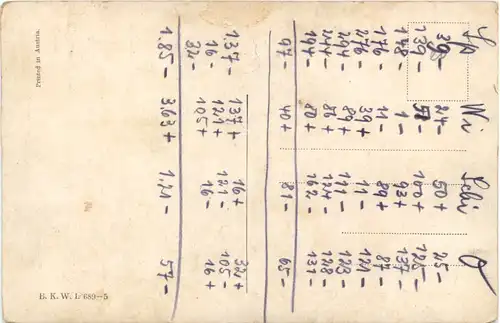 Sp Wi
39- 24- 50+ 25-
139- 51- 100+ 126-
148- 1- 93+ 137-
176- 11- 89+ 81-
276- 39+ 11- 121-
294- 89+ 111- 123-
244- 86+ 124- 128-
194- 80+ 162- 131-
97- 40+ 81- 65-
137- 137+ 16+ 32+
16- 121+ 121- 105-
32- 105+ 16- 16+
185- 363+ 1,21- 57-
Printed in Austria.
B. K. W. I. 689-5